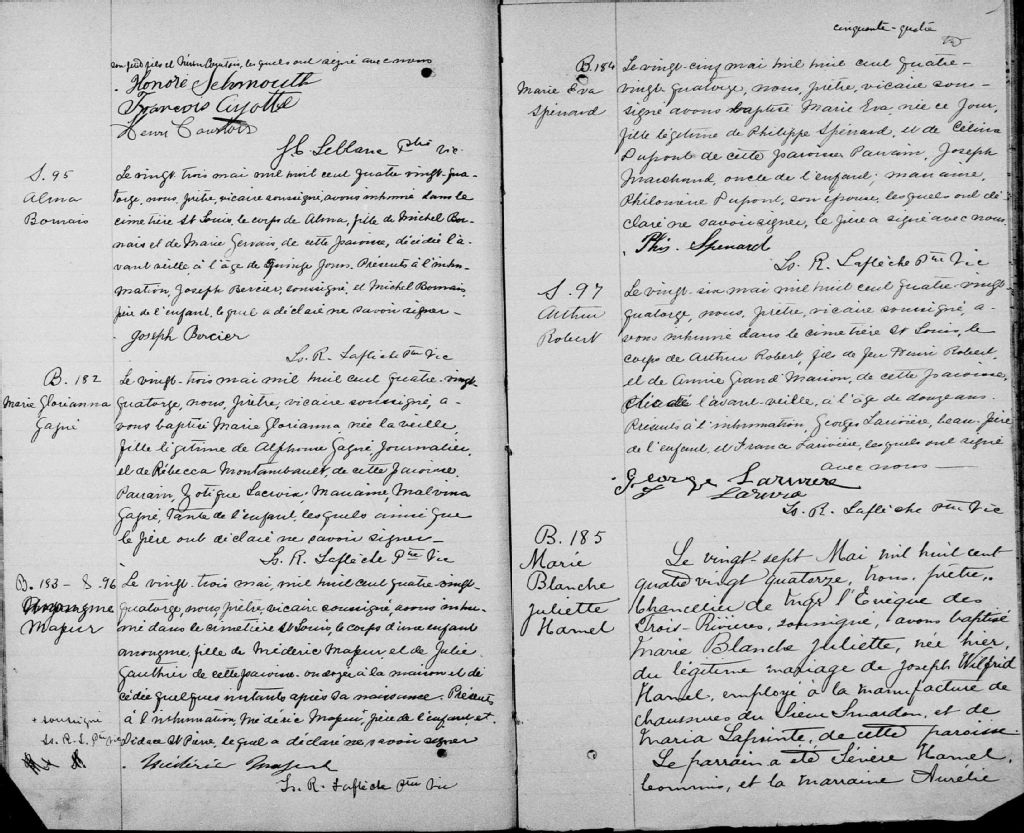 son fils et Henri Courtois, lesquels ont signé avec nous
Honoré Schmouth
François Ayotte
Henri Courtois
J. E. Leblanc Ptre Vic
S. 95
Alma
Bornais
Le vingt-trois mai mil huit cent quatre-vingt-qua-
torze, nous, prêtre, vicaire soussigné, avons inhumé dans le
cimetière St Louis, le corps de Alma, fille de Michel Bor-
nais et de Marie Gervais, de cette paroisse, décédée l'a-
vant veille, à l'âge de quinze jours. Présents à l'inhu-
mation, Joseph Bercier, soussigné, et Michel Bornais,
père de l'enfant, lequel a déclaré ne savoir signer-
Joseph Bercier
Ls. R. Laflèche Ptre Vic
B. 182
Marie Glorianna
Gagné
Le vingt-trois mai mil huit cent quatre-vingt-
quatorze, nous, prêtre, vicaire soussigné, a-
vons baptisé Marie Glorianna, née la veille,
fille légitime de Alphonse Gagné Journalier,
et de Rébecca Montambault, de cette paroisse.
Parrain, Zotique Lacroix; Marraine, Malvina
Gagné, tante de l'enfant, lesquels ainsi que
le père ont déclaré ne savoir signer-
Ls. R. Laflèche Ptre Vic
B. 183 - S. 96
Anonyme
Majeur
Le vingt-trois mai, mil huit cent quatre-vingt-
quatorze, nous, prêtre, vicaire soussigné, avons inhu-
mé dans le cimetière St Louis, le corps d'une enfant
anonyme, fille de Médéric Majeur, et de Julie
Gauthier de cette paroisse ondoyée à la maison et dé-
cédée quelques instants après sa naissance. Présents
à l'inhumation, Médéric Majeur, père de l'enfant et
Didace St Pierre, lequel a déclaré ne savoir signer
+ soussigné
Ls. R. L. Ptre Vic
Médéric Majeur
Ls. R. Laflèche Ptre Vic
cinquante-quatre
B. 184
Marie Eva
Spénard
Le vingt-cinq mai mil huit cent quatre-
vingt-quatorze, nous, prêtre, vicaire sous-
signé avons baptisé Marie Eva, née ce jour,
fille légitime de Philippe Spénard, et de Célina
Dupont de cette paroisse Parrain, Joseph
Marchand, oncle de l'enfant; marraine,
Philomène Dupont, son épouse, lesquels ont dé-
claré ne savoir signer, le père a signé avec nous.
Phis. Spenard
Ls. R. Laflèche Ptre Vic
S. 97
Arthur
Robert
Le vingt-six mai mil huit cent quatre-vingt-
quatorze, nous, prêtre, vicaire soussigné, a-
vons inhumé dans le cimetière St Louis, le
corps de Arthur Robert, fils de feu Henri Robert,
et de Annie Grand'Maison, de cette paroisse,
l'avant-veille, à l'âge de douze ans.
Présents à l'inhumation, Georges Larivière, beau-frère
de l'enfant, et France Larivière, lesquels ont signé
avec nous-
George Lariviere
Ls. R. Laflèche Ptre Vic
B. 185
Marie
Blanche
Juliette
Hamel
Le vingt-sept Mai mil huit cent
quatre vingt quatorze, nous, prêtre,
Chancelier de Mgr l'Evêque des
Trois-Rivières, soussigné, avons baptisé
Marie Blanche Juliette, née hier,
du légitime mariage de Joseph Wilfrid
Hamel, employé à la manufacture de
chaussures du Sieur Smardon, et de
Maria Lapointe, de cette paroisse
Le parrain a été Sévère Hamel,
Commis, et la marraine Aurélie